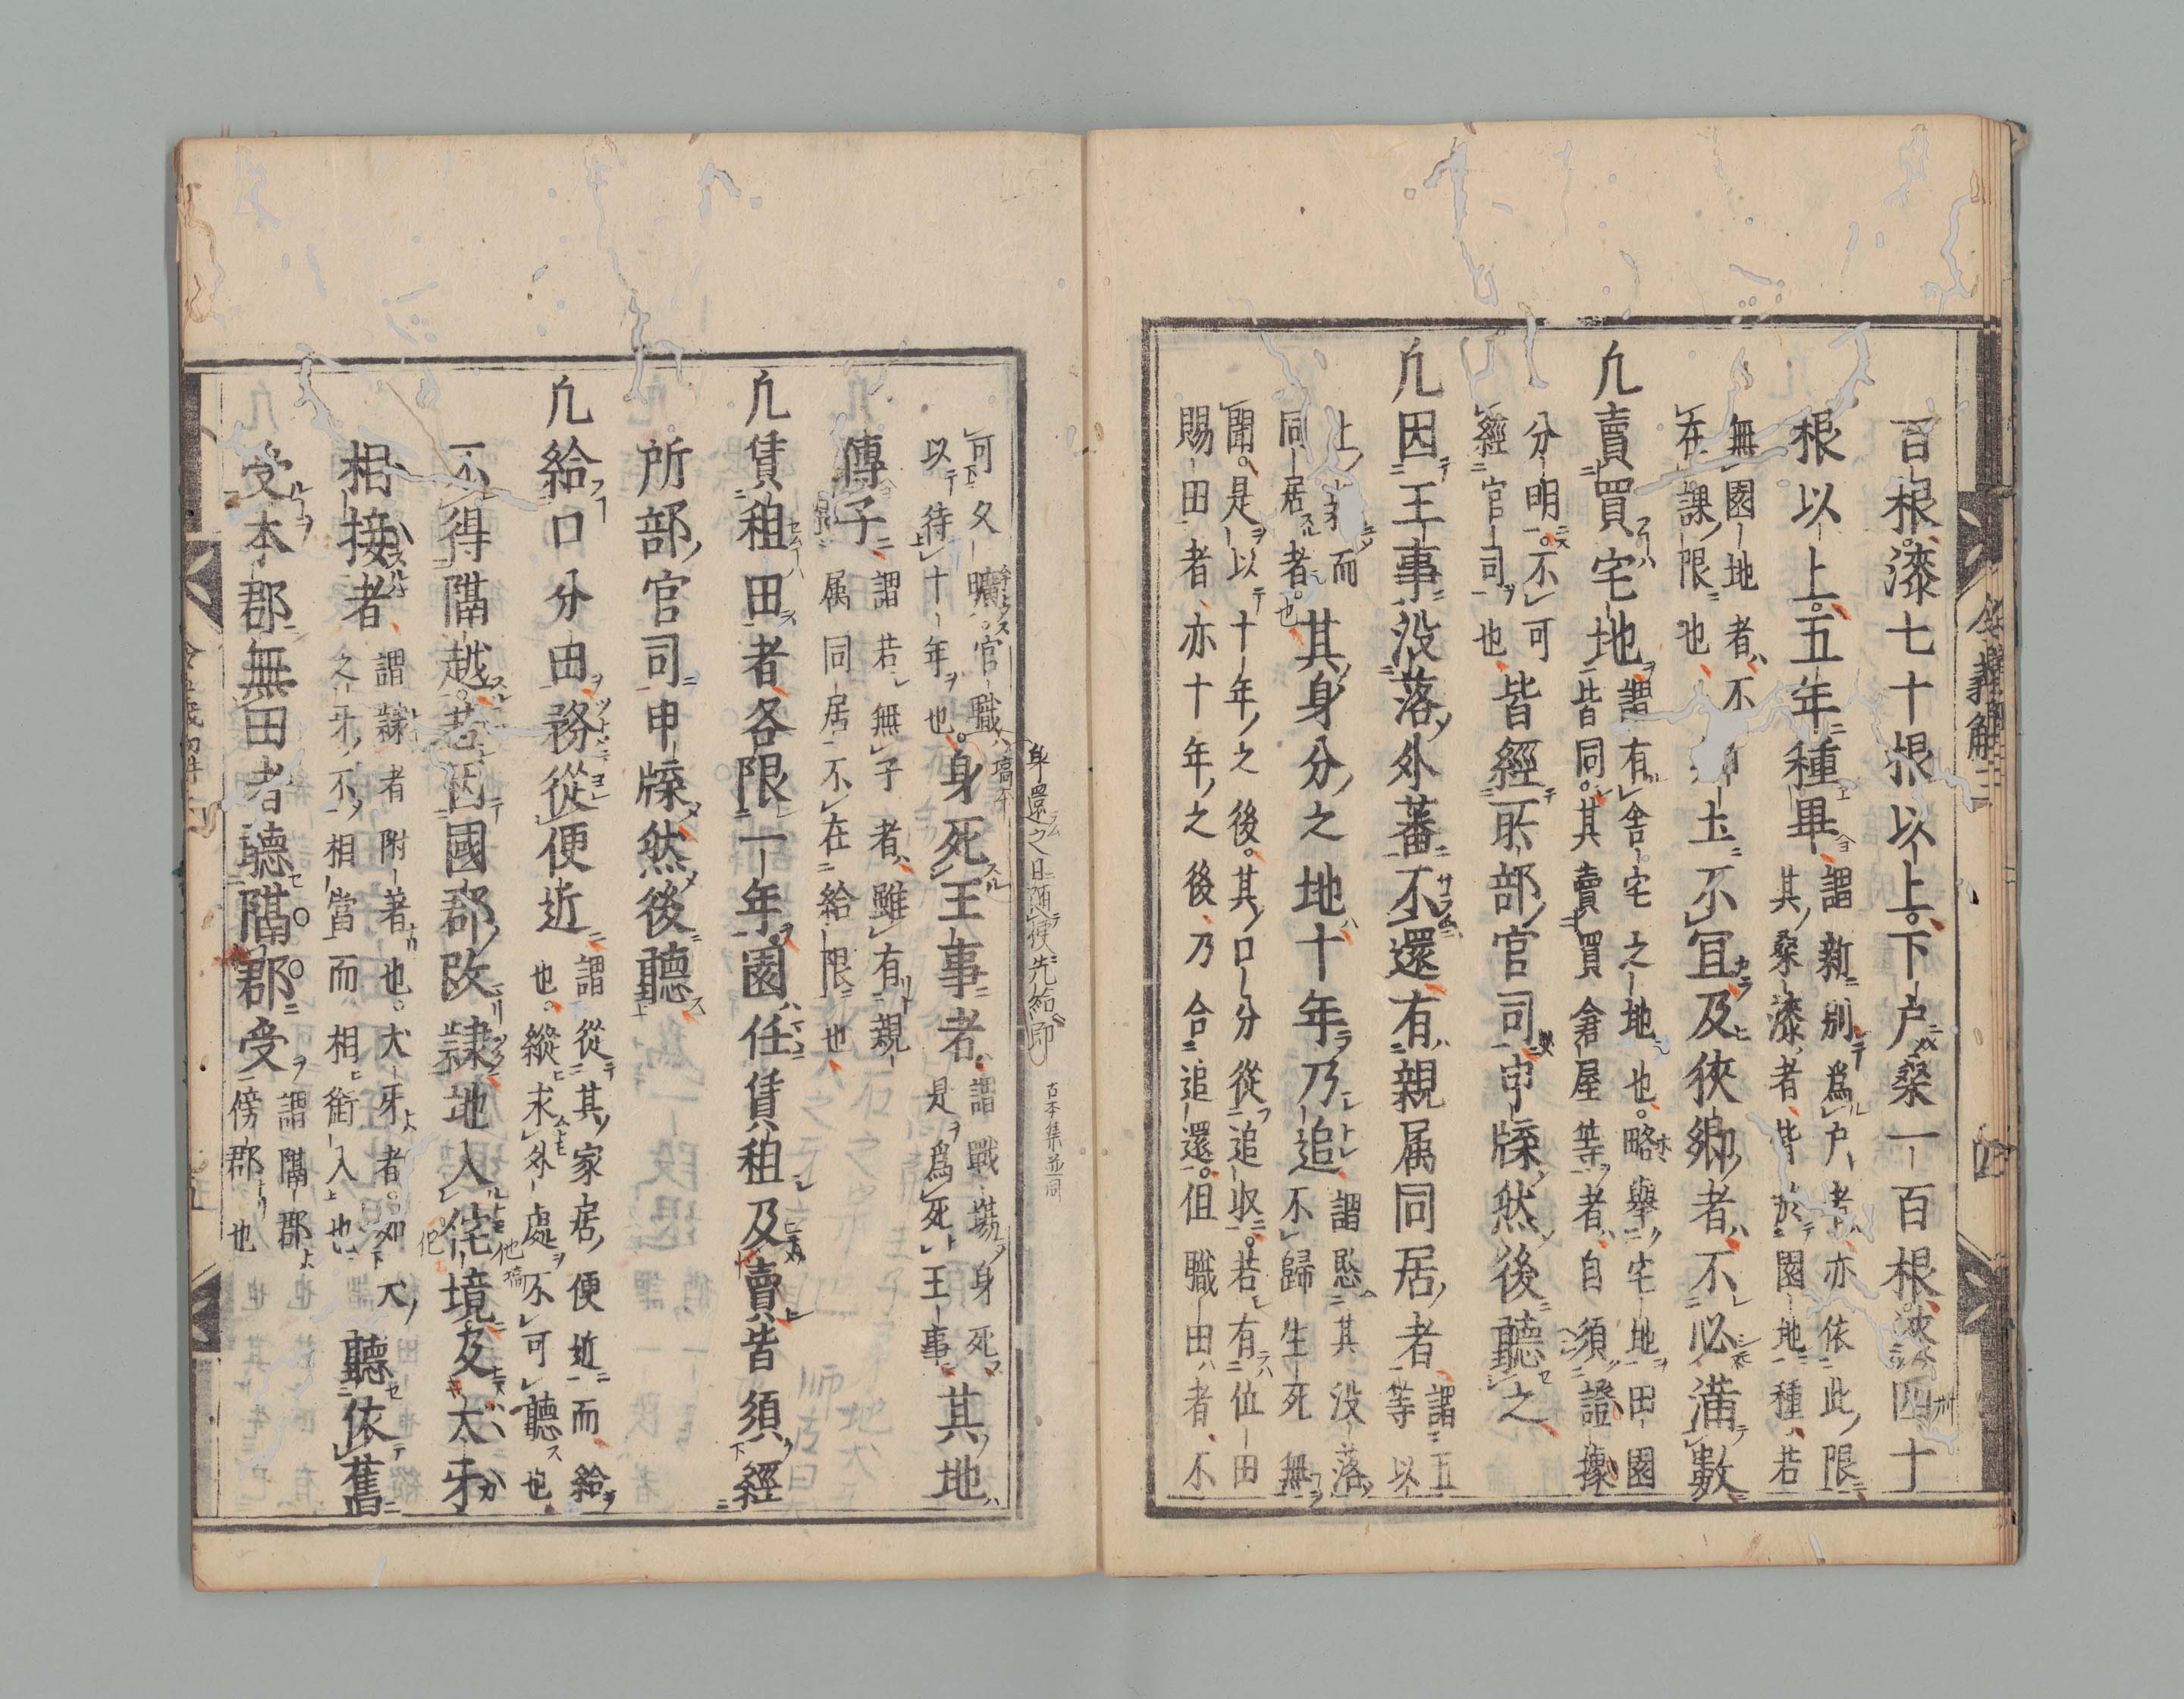 百根漆七十根以上下戸桑一百根漆四十
根以上五年種畢謂新別爲戸者亦依此限
其桑漆者皆於園地種若
無園地者不
在課限也土不宜及狹鄉者不必滿數
凢賣買宅地謂有舎宅之地也略舉宅地田園
皆同其賣買倉屋等者自須證據
分明不可
經官司也皆經所部官司申牒然後聽之
凢因王事没落外蕃不還有親属同居者謂五
等以
上而
同居者也其身分之地十年乃追謂愍其没落
不歸生死無
聞是以十年之後其口分從追収若有位田
賜田者亦十年之後乃合追還但職田者不
可久曠官職
以待十年也身死王事者謂戰場身死
是爲死王事其地
傳子謂若無子者雖有親
属同居不在給限也
凢賃租田者各限一年園任賃租及賣皆須經
所部官司申牒然後聽
凢給口分田務從便近謂從其家居便近而給
也縱求外處不可聽也
不得隔越若因國郡改隷地入侘境及犬牙
相接者謂隷者附著也犬牙者如犬
之牙不相當而相銜入也聽依舊
受本郡無田者聽隔郡受謂隔郡
傍郡也
年還之日随便先給即
古本集並同
令義解三
四